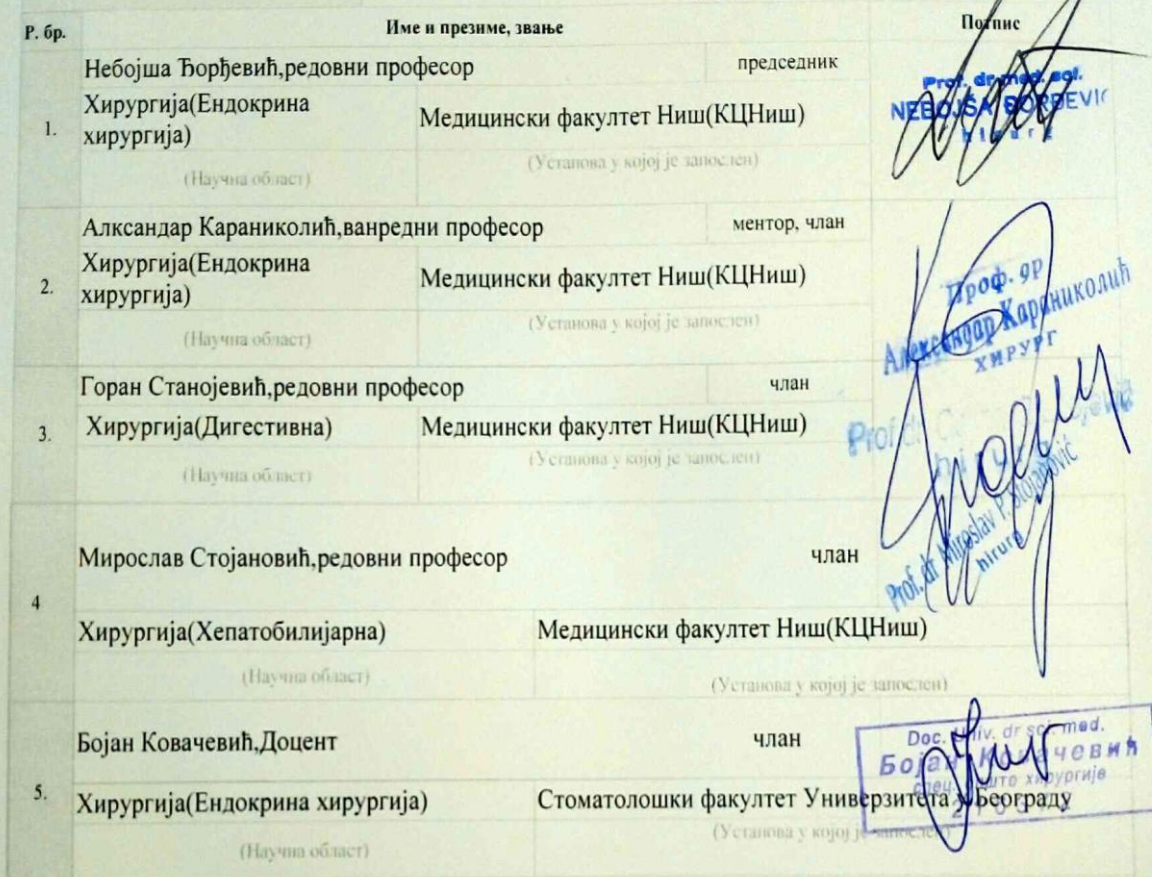 Р. бр. Име и презиме, звање Потпис
Небојша Ђорђевић,редовни професор председник
1. Хирургија(Ендокрина хирургија) Медицински факултет Ниш(КЦНиш)
(Научна област) (Установа у којој је запослен)
Prof. dr med. sci.
NEBOJŠA ĐORĐEVIĆ
hirurg
Алксандар Караниколић,ванредни професор ментор, члан
2. Хирургија(Ендокрина хирургија) Медицински факултет Ниш(КЦНиш)
(Научна област) (Установа у којој је запослен)
Проф. др
Александар Караниколић
ХИРУРГ
Горан Станојевић,редовни професор члан
3. Хирургија(Дигестивна) Медицински факултет Ниш(КЦНиш)
(Научна област) (Установа у којој је запослен)
Prof. dr
Prof. dr Miroslav P. Stojanović
hirurg
Мирослав Стојановић,редовни професор члан
4
Хирургија(Хепатобилијарна) Медицински факултет Ниш(КЦНиш)
(Научна област) (Установа у којој је запослен)
Бојан Ковачевић,Доцент члан
5. Хирургија(Ендокрина хирургија) Стоматолошки факултет Универзитета у Београду
(Научна област) (Установа у којој је запослен)
Doc. Univ. dr sci. med.
Бојан Ковачевић
хирургије